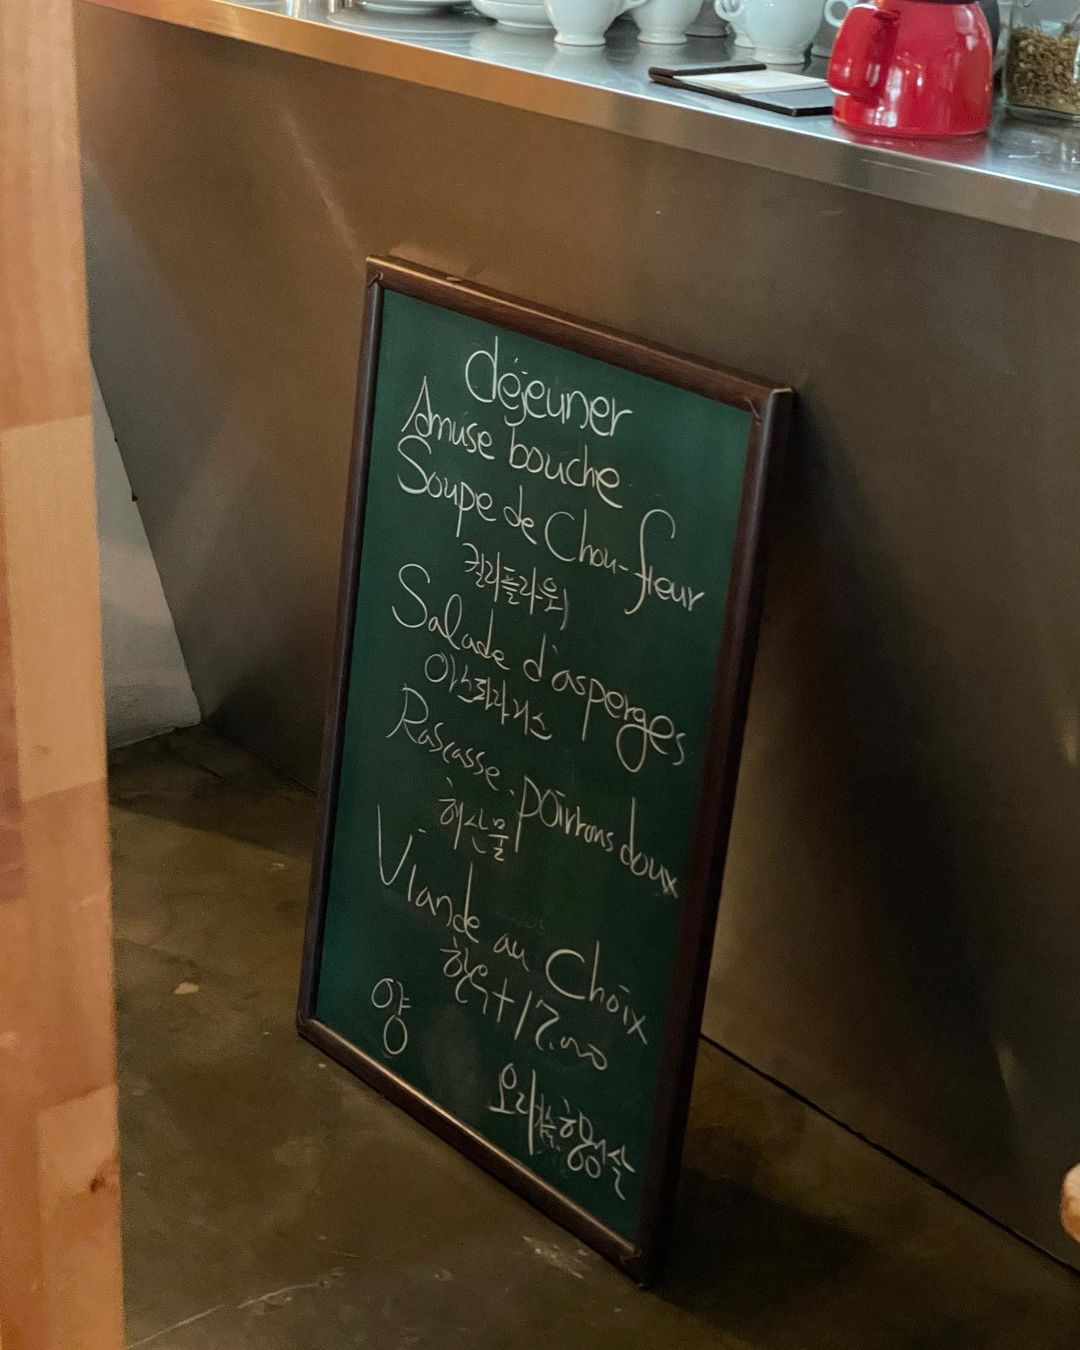 déjeuner
Amuse bouche
Soupe de Chou-fleur
컬리플라워
Salade d'asperges
아스파라거스
Rascasse. poivrons doux
해산물
Viande au Choix
한우 +17.000
양
오리가슴. 항정살